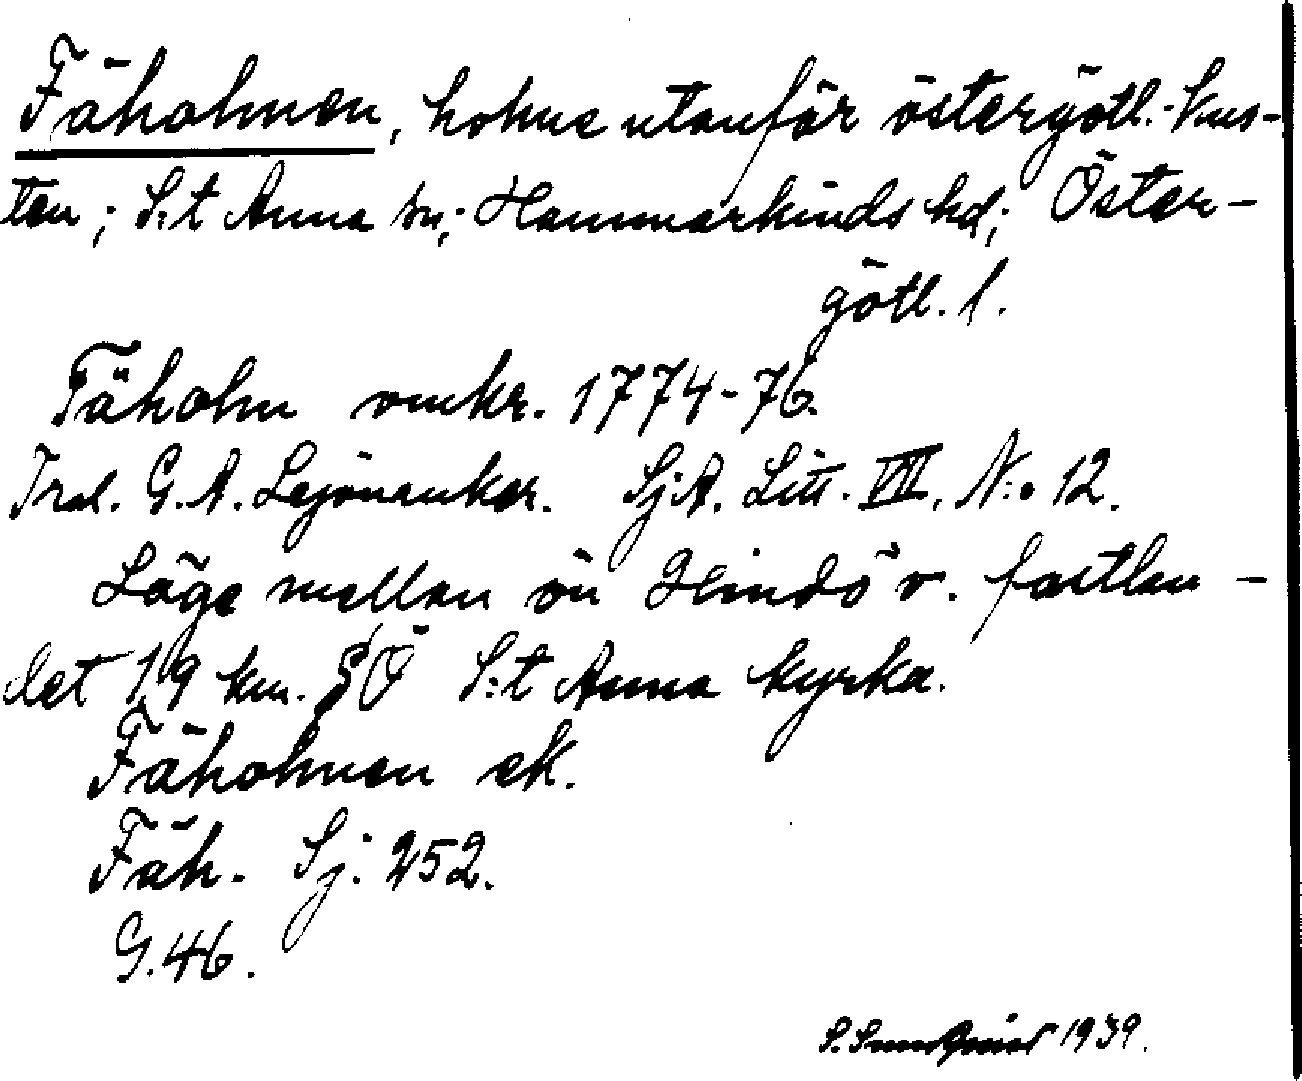 Fäholmen, holme utanför östergötl.-kus-
ten; S:t Anna sn; Hammarkinds hd; Öster-
götl. l.
Fäholm omkr. 1774-76.
Trol. G. A. Lejonanker. SjA. Litt. VII. N:o 12.
Läge mellan ön Hindö o. fastlan-
det 1,9 km. SÖ S:t Anna kyrka.
Fäholmen ek.
Fäh. Sj. 252.
G. 46.
S. Sundqvist 1939.